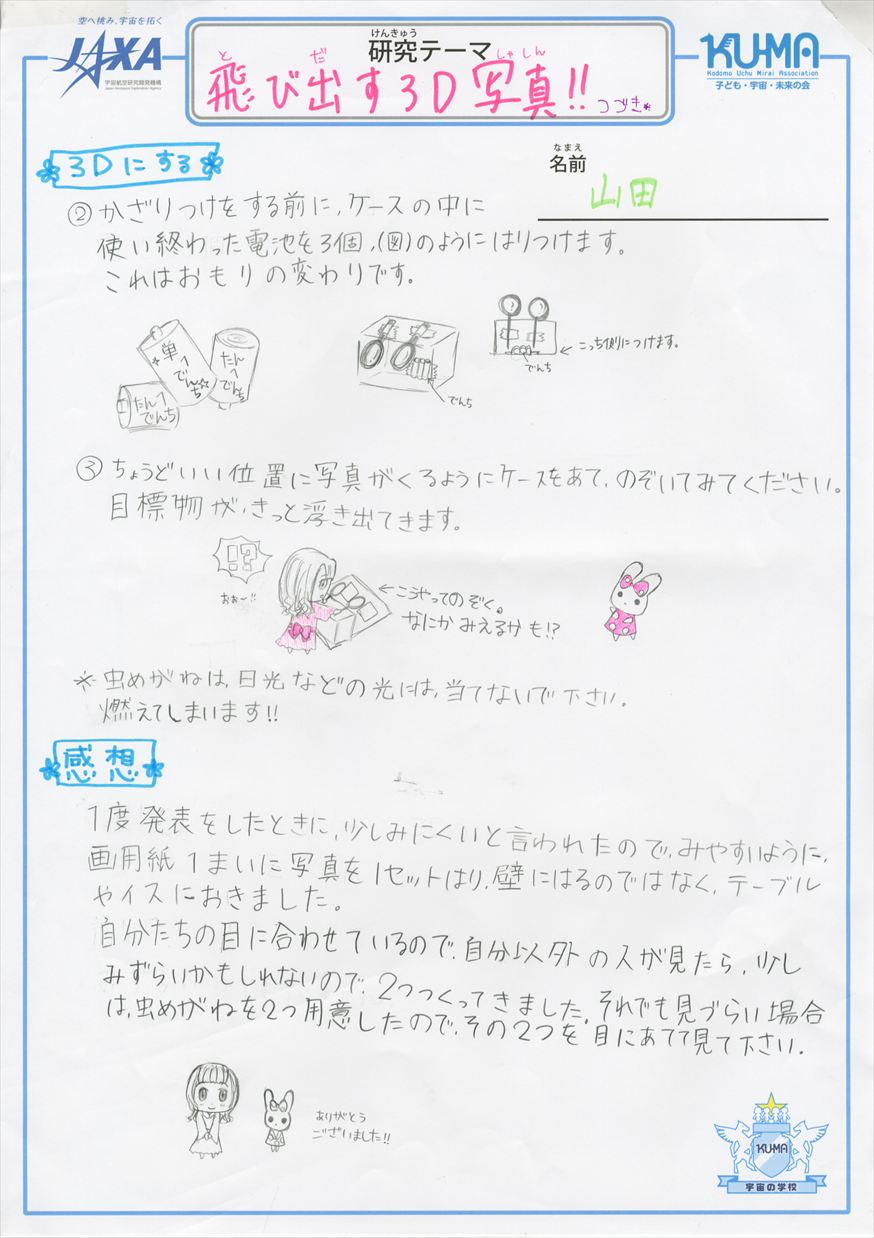 空へ挑み、宇宙を拓く
JAXA
宇宙航空研究開発機構
Japan Aerospace Exploration Agency
けんきゅう
研究テーマ
と だ しゃしん
飛び出す3D写真!! つづき*
KU-MA
Kodomo Uchu Mirai Association
子ども・宇宙・未来の会
なまえ
名前
山田
3Dにする
②かざりつけをする前に、ケースの中に
使い終わった電池を3個、(図)のようにはりつけます。
これはおもりの変わりです。
単1でんち
たん1でんち
たん1でんち
でんち
でんち
こっち側につけます。
③ちょうどいい位置に写真がくるようにケースをあて、のぞいてみてください。
目標物が、きっと浮き出てきます。
!?
おぉー!!
こうやってのぞく。
なにかみえるかも!?
*虫めがねは、日光などの光には、当てないで下さい。
燃えてしまいます!!
感想
1度発表をしたときに、少しみにくいと言われたので、みやすいように、
画用紙1まいに写真を1セットはり、壁にはるのではなく、テーブル
やイスにおきました。
自分たちの目に合わせているので、自分以外の人が見たら、少し
みずらいかもしれないので、2つつくってきました。それでも見づらい場合
は、虫めがねを2つ用意したので、その2つを目にあてて見て下さい。
ありがとう
ございました!!
KU-MA
宇宙の学校